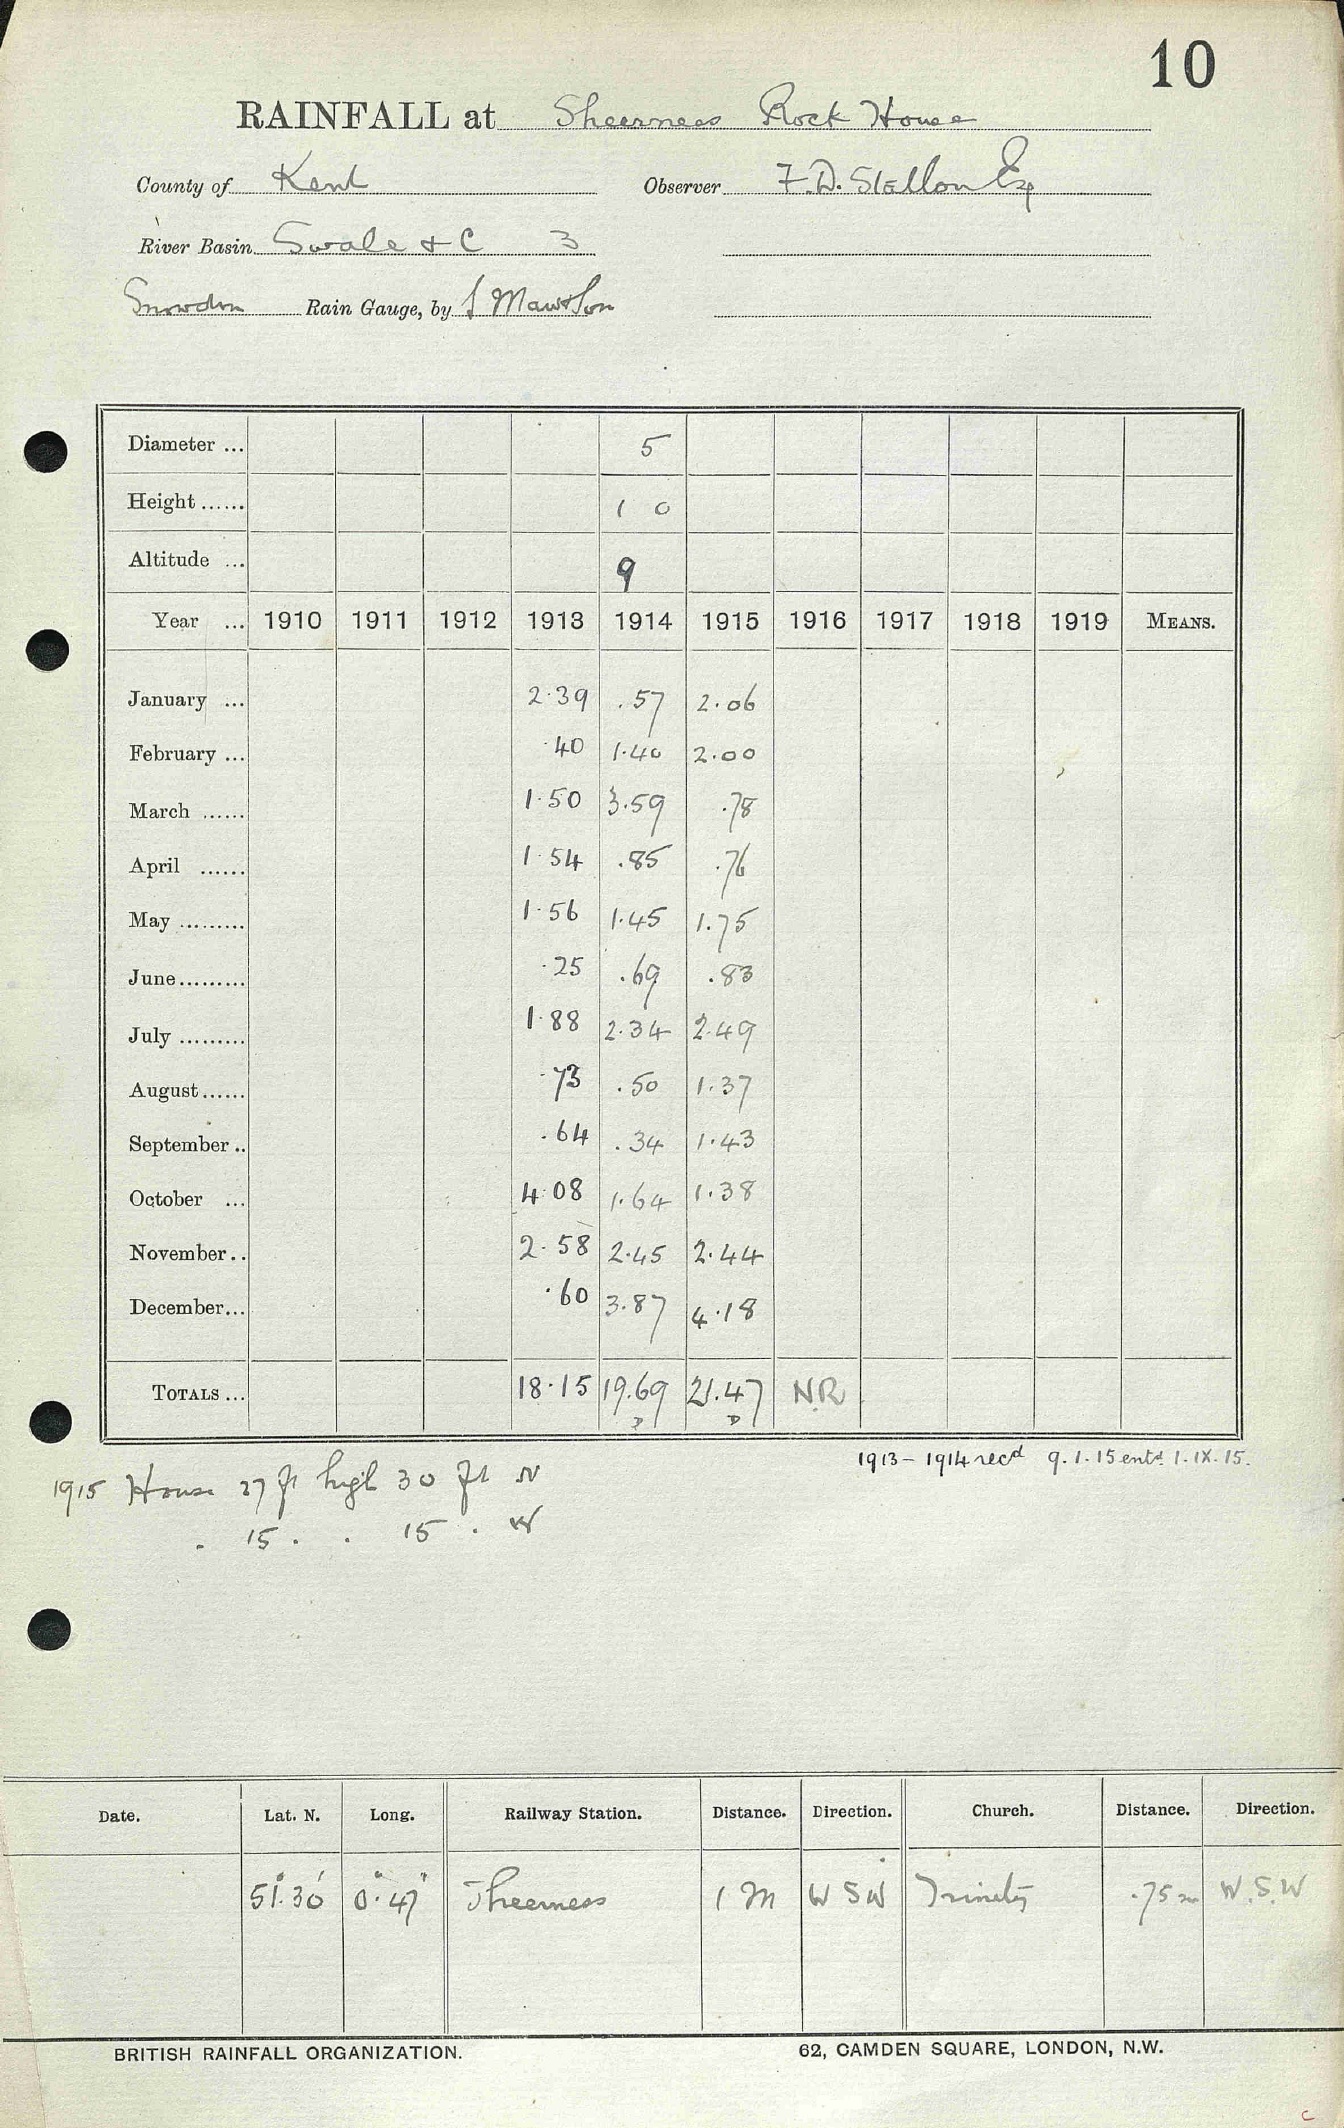 10
RAINFALL at Sheerness Rock House
County of Kent Observer F. D. Stallon Esq
River Basin Swale & C 3
Snowdon Rain Gauge, by S Maw & Son
Diameter ... 5
Height ...... 1 0
Altitude ... 9
Year ... 1910 1911 1912 1913 1914 1915 1916 1917 1918 1919 MEANS.
January ... 2.39 .57 2.06
February ... .40 1.40 2.00
March ...... 1.50 3.59 .78
April ...... 1.54 .85 .76
May ......... 1.56 1.45 1.75
June ......... .25 .69 .83
July ......... 1.88 2.34 2.49
August ...... .73 .50 1.37
September .. .64 .34 1.43
October ... 4.08 1.64 1.38
November .. 2.58 2.45 2.44
December ... .60 3.87 4.18
TOTALS ... 18.15 19.69 21.47 N.R.
D D
1913 - 1914 recd 9.1.15 entd 1.IX.15.
1915 House 27 ft high 30 ft N
. 15 . . 15 . W
Date. Lat. N. Long. Railway Station. Distance. Direction. Church. Distance. Direction.
51°.30' 0°.47' Sheerness 1 M W S W Trinity .75 m W.S.W
BRITISH RAINFALL ORGANIZATION. 62, CAMDEN SQUARE, LONDON, N.W.
C